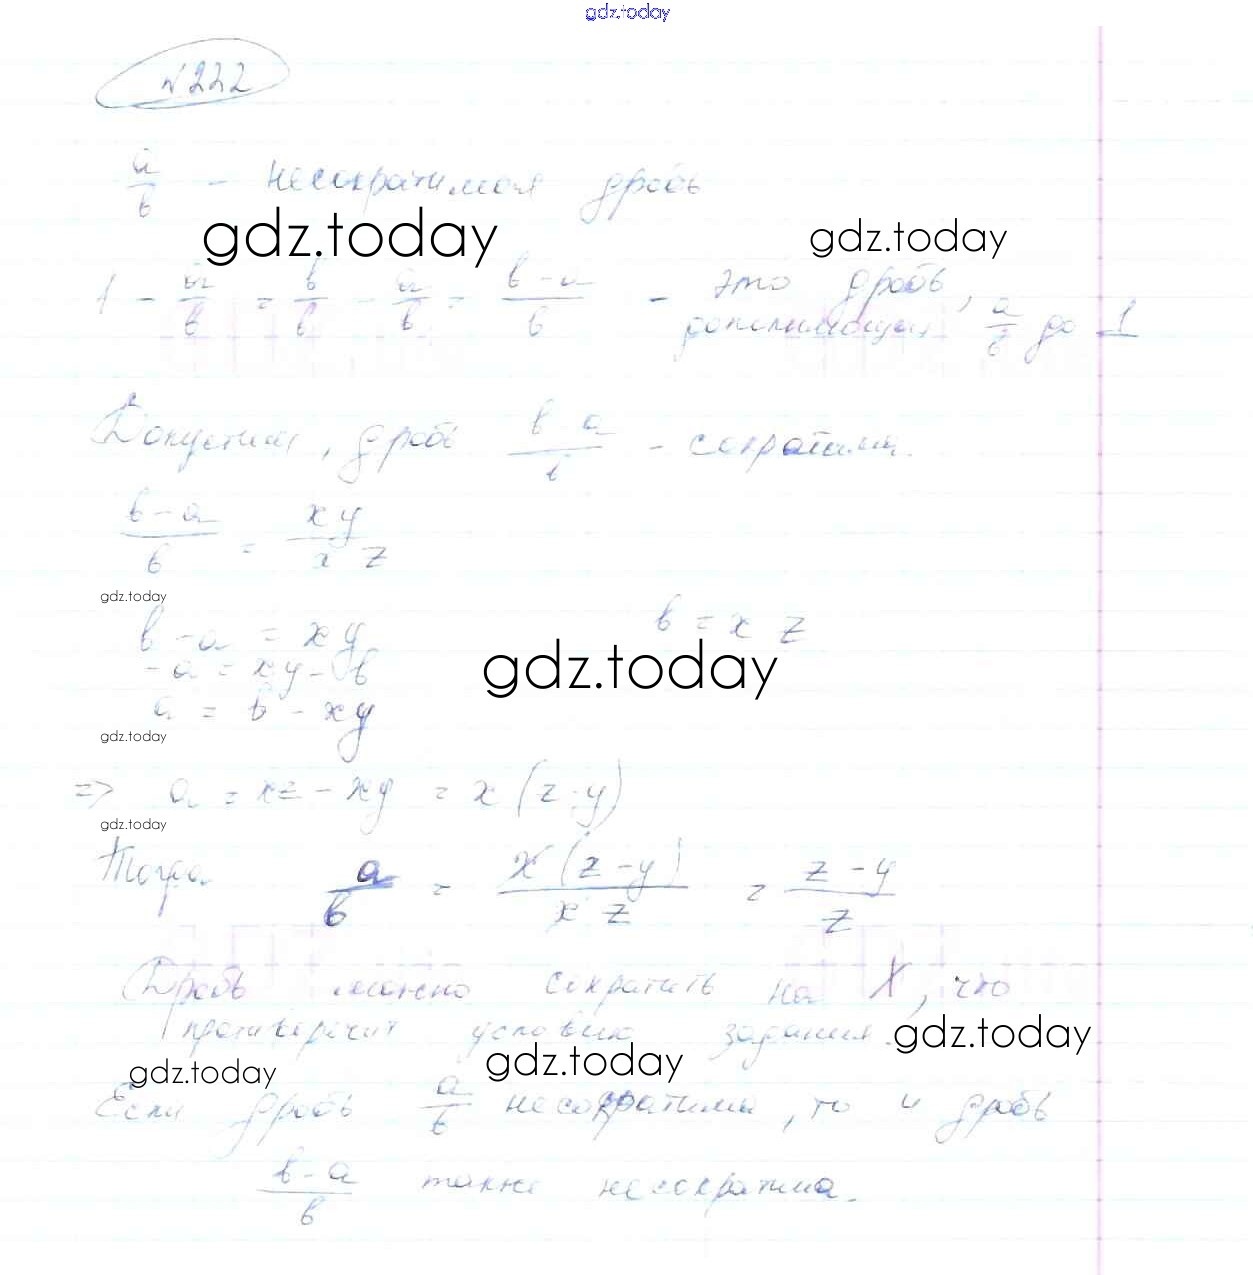 gdz.today
№222
a/в - несократимая дробь
gdz.today gdz.today
1 - a/в = в/в - a/в = (в-a)/в - это дробь, дополняющая a/в до 1
Допустим, дробь (в-a)/в - сократима.
(в-a)/в = xy/xz
gdz.today
в - a = xy в = xz
-a = xy - в
gdz.today
a = в - xy
gdz.today
=> a = xz - xy = x(z-y)
gdz.today
Тогда a/в = x(z-y)/xz = (z-y)/z
Дробь можно сократить на X, что
противоречит условию задания.
gdz.today
gdz.today gdz.today
Если дробь a/в несократима, то и дробь
(в-a)/в также несократима.